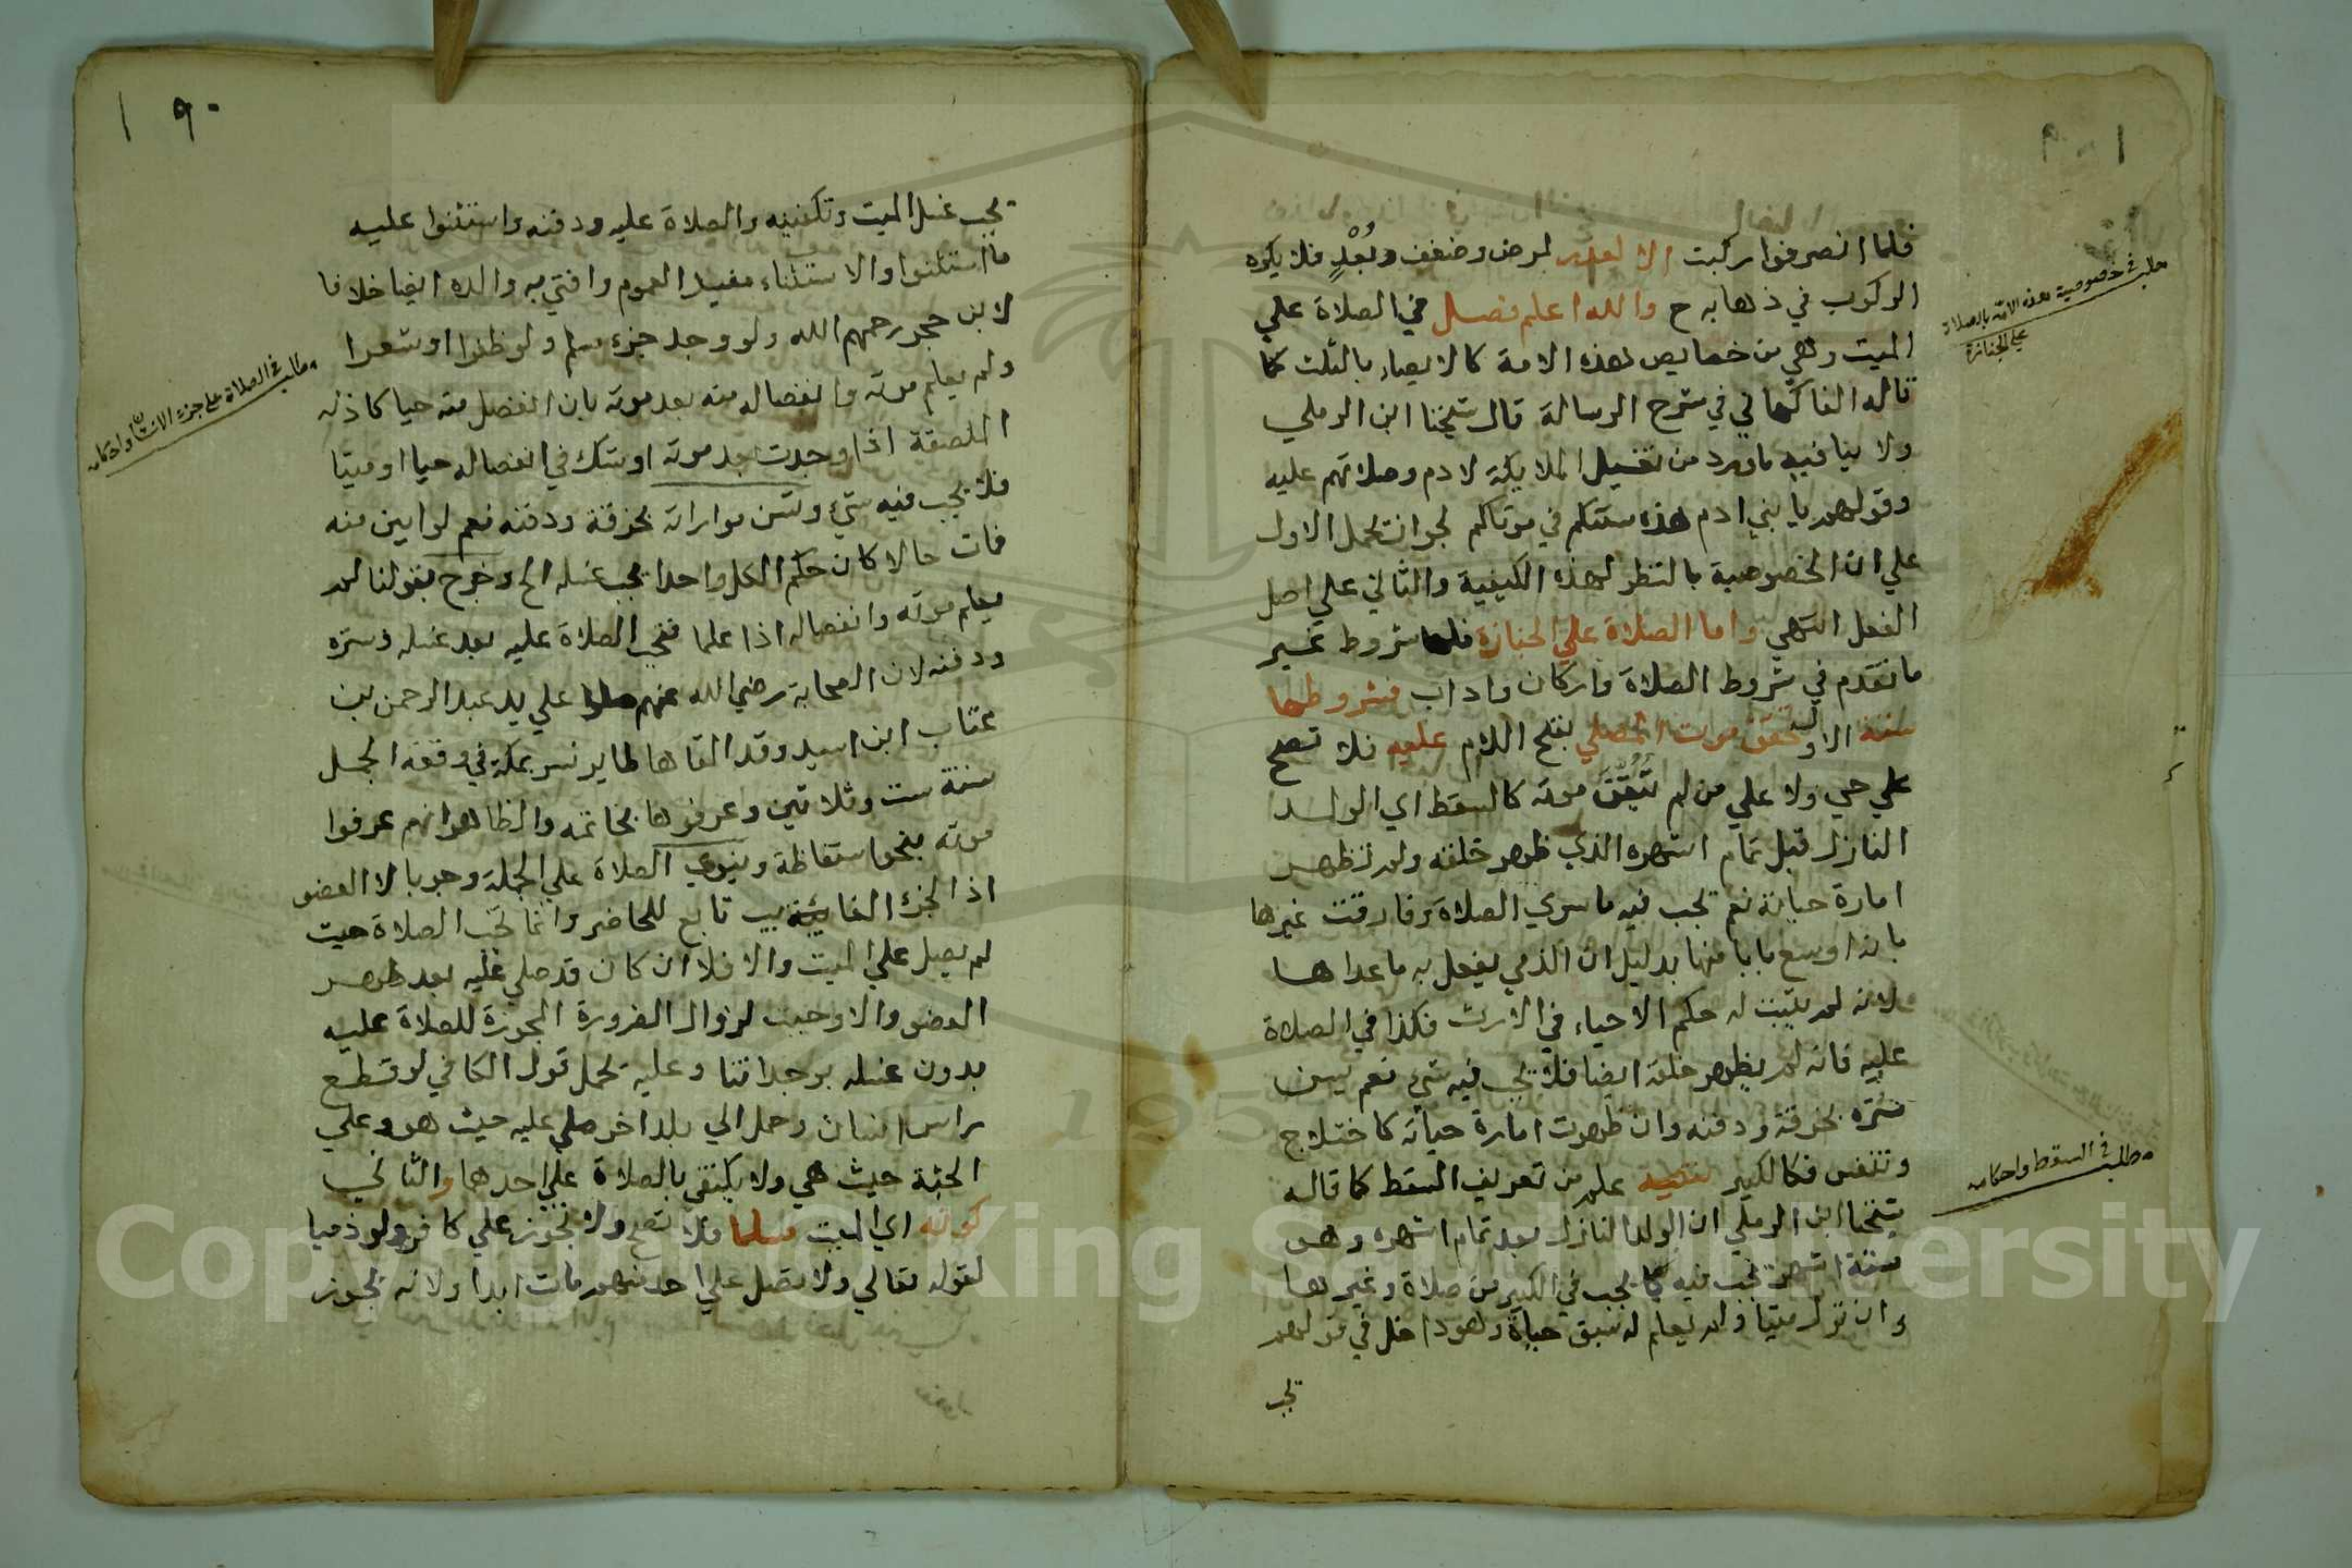 فلما انصرفوا ركبت الا لعذر لمرض وضعف وبُعْدٍ فلا يكره
الركوب في ذهابه ح والله اعلم فصل في الصلاة علي
الميت وهي من خصايص هذه الامة كالايصاء بالثلث كما
قاله الفاكهاني في شرح الرسالة قال شيخنا ابن الرملي
ولا ينافيه ما ورد من تغسيل الملايكة لادم وصلاتهم عليه
وقولهم يا بني ادم هذه سنتكم في موتاكم لجواز حمل الاول
علي ان الخصوصية بالنظر لهذه الكيفية والثاني علي اصل
الفعل انتهي واما الصلاة علي الجنازة فلها شروط غير
ما تقدم في شروط الصلاة واركان واداب فشروطها
ستة الاول تحقق موت المصلي بفتح اللام عليه فلا تصح
علي حي ولا علي من لم تتحقق موته كالسقط اي الولد
النازل قبل تمام اشهره الذي ظهر خلقه ولم تظهر
امارة حياته نعم تجب فيه ما سوي الصلاة وفارقت غيرها
بانه اوسع بابا منها بدليل ان الذمي يفعل به ما عداها
ولانه لم يثبت له حكم الاحياء في الارث فكذا في الصلاة
عليه فانه لم يظهر خلقه ايضا فلا يجب فيه شي نعم يسن
ستره بخرقة ودفنه وان ظهرت امارة حياته كاختلاج
وتنفس فكالكبير تنبيه علم من تعريف السقط كما قاله
شيخنا ابن الرملي ان الولد النازل بعد تمام اشهره وهو
ستة اشهر تجب فيه كما يجب في الكبير من صلاة وغيرها
وان نزل ميتا ولم يعلم له سبق حياة وهو داخل في قولهم
تجب
مطلب في خصوصية هذه الامة بالصلاة
علي الجنازة
مطلب في السقط واحكامه
١٩٠
تجب غسل الميت وتكفينه والصلاة عليه ودفنه واستثنوا عليه
ما استثنوا والاستثناء مفيد العموم وافتي به والده ايضا خلافا
لابن حجر رحمهم الله ولو وجد جزء مسلم ولو ظفرا او شعرا
ولم يعلم موته وانفصاله منه بعد موته بان انفصل منه حيا كاذنه
الملصقة اذا وجدت بعد موته او شك في انفصاله حيا او ميتا
فلا يجب فيه شيء وتسن مواراته بخرقة ودفنه نعم لو ابين منه
فمات حالا كان حكم الكل واحدا يجب غسله الخ وخرج بقولنا لم
يعلم موته وانفصاله اذا علما فتجب الصلاة عليه بعد غسله وستره
ودفنه لان الصحابة رضي الله عنهم صلوا علي يد عبد الرحمن بن
عتاب ابن اسيد وقد القاها طاير نسر بمكة في وقعة الجمل
سنة ست وثلاثين وعرفوها بخاتمه والظاهر انهم عرفوا
موته بنحو استفاظة وينوي الصلاة علي الجملة وجوبا لا العضو
اذ الجزء الغايب تابع للحاضر وانما تجب الصلاة حيث
لم يصل علي الميت والا فلا ان كان قد صلي عليه بعد طهر
العضو والا وجبت لزوال الضرورة المجوزة للصلاة عليه
بدون غسله بوجداننا وعليه يحمل قول الكافي لو قطع
راس انسان وحمل الي بلد اخر صلي عليه حيث هو وعلي
الجثة حيث هي ولا يكتفي بالصلاة علي احدها والثاني
كونه اي الميت مسلما فلا تصح ولا تجوز علي كافر ولو ذميا
لقوله تعالي ولا تصل علي احد منهم مات ابدا ولانه تجوز
مطلب في الصلاة علي جزء الانسان واحكامه